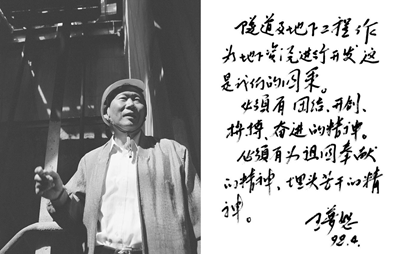 隧道及地下工程作
为地下资源进行开发这
是我们的国策。
必须有团结、开创、
拼搏、奋进的精神。
必须有为祖国奉献
的精神，埋头苦干的精
神。
王梦恕
92.4.